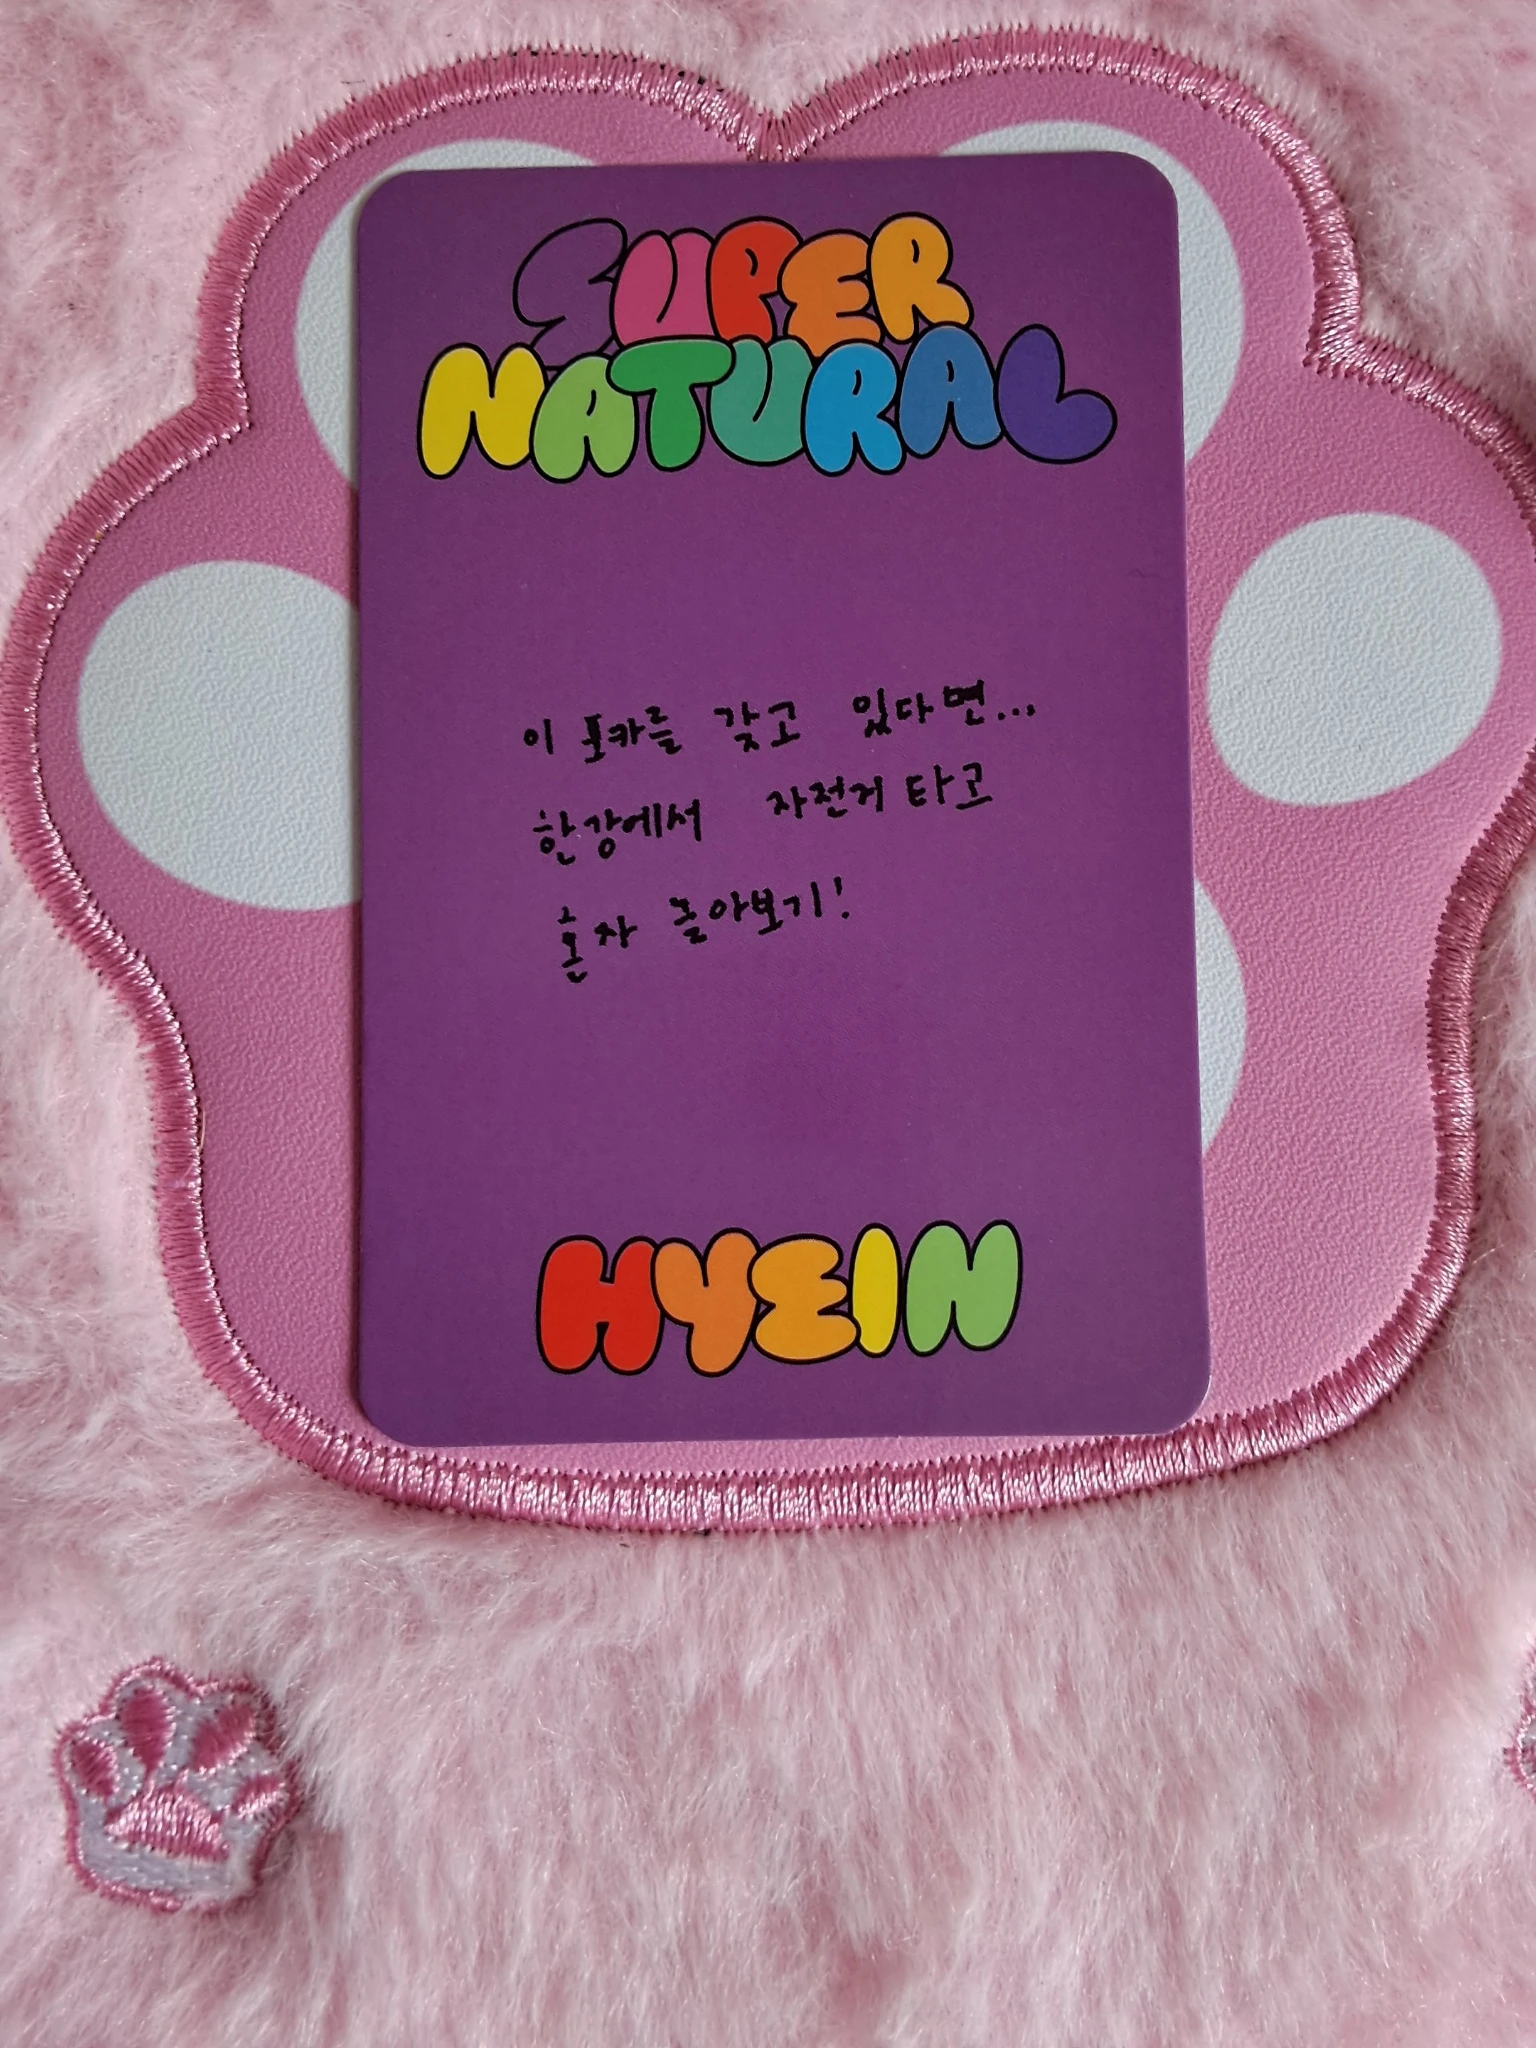 SUPER
NATURAL
이 포카를 갖고 있다면...
한강에서 자전거 타고
혼자 놀아보기!
HYEIN